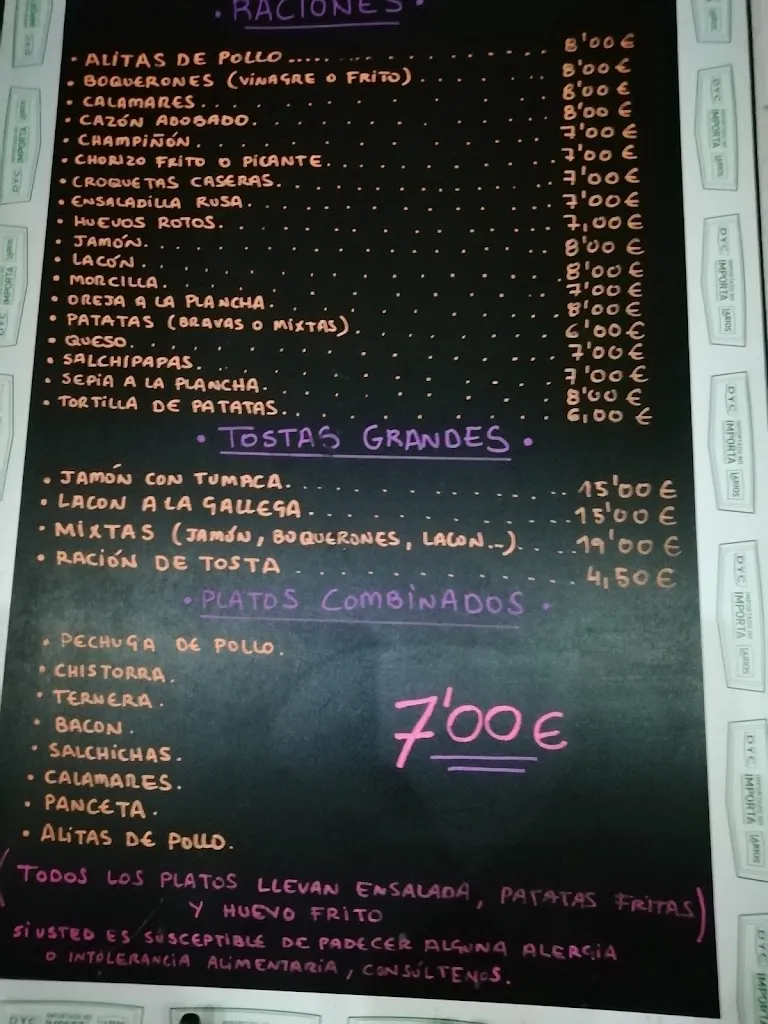 · RACIONES ·
· ALITAS DE POLLO 8'00 €
· BOQUERONES (VINAGRE O FRITO) 8'00 €
· CALAMARES 8'00 €
· CAZÓN ADOBADO 8'00 €
· CHAMPIÑÓN 7'00 €
· CHORIZO FRITO O PICANTE 7'00 €
· CROQUETAS CASERAS 7'00 €
· ENSALADILLA RUSA 7'00 €
· HUEVOS ROTOS 7,00 €
· JAMÓN 8'00 €
· LACÓN 8'00 €
· MORCILLA 7'00 €
· OREJA A LA PLANCHA 8'00 €
· PATATAS (BRAVAS O MIXTAS) 6'00 €
· QUESO 7'00 €
· SALCHIPAPAS 7'00 €
· SEPIA A LA PLANCHA 8'00 €
· TORTILLA DE PATATAS 6,00 €
· TOSTAS GRANDES ·
· JAMÓN CON TUMACA 15'00 €
· LACON A LA GALLEGA 15'00 €
· MIXTAS (JAMÓN, BOQUERONES, LACON...) 19'00 €
· RACIÓN DE TOSTA 4,50 €
· PLATOS COMBINADOS ·
· PECHUGA DE POLLO.
· CHISTORRA.
· TERNERA.
· BACON.
· SALCHICHAS.
· CALAMARES.
· PANCETA.
· ALITAS DE POLLO.
7'00 €
(TODOS LOS PLATOS LLEVAN ENSALADA, PATATAS FRITAS
Y HUEVO FRITO)
SI USTED ES SUSCEPTIBLE DE PADECER ALGUNA ALERGIA
O INTOLERANCIA ALIMENTARIA, CONSÚLTENOS.
DYC IMPORTA LARIOS